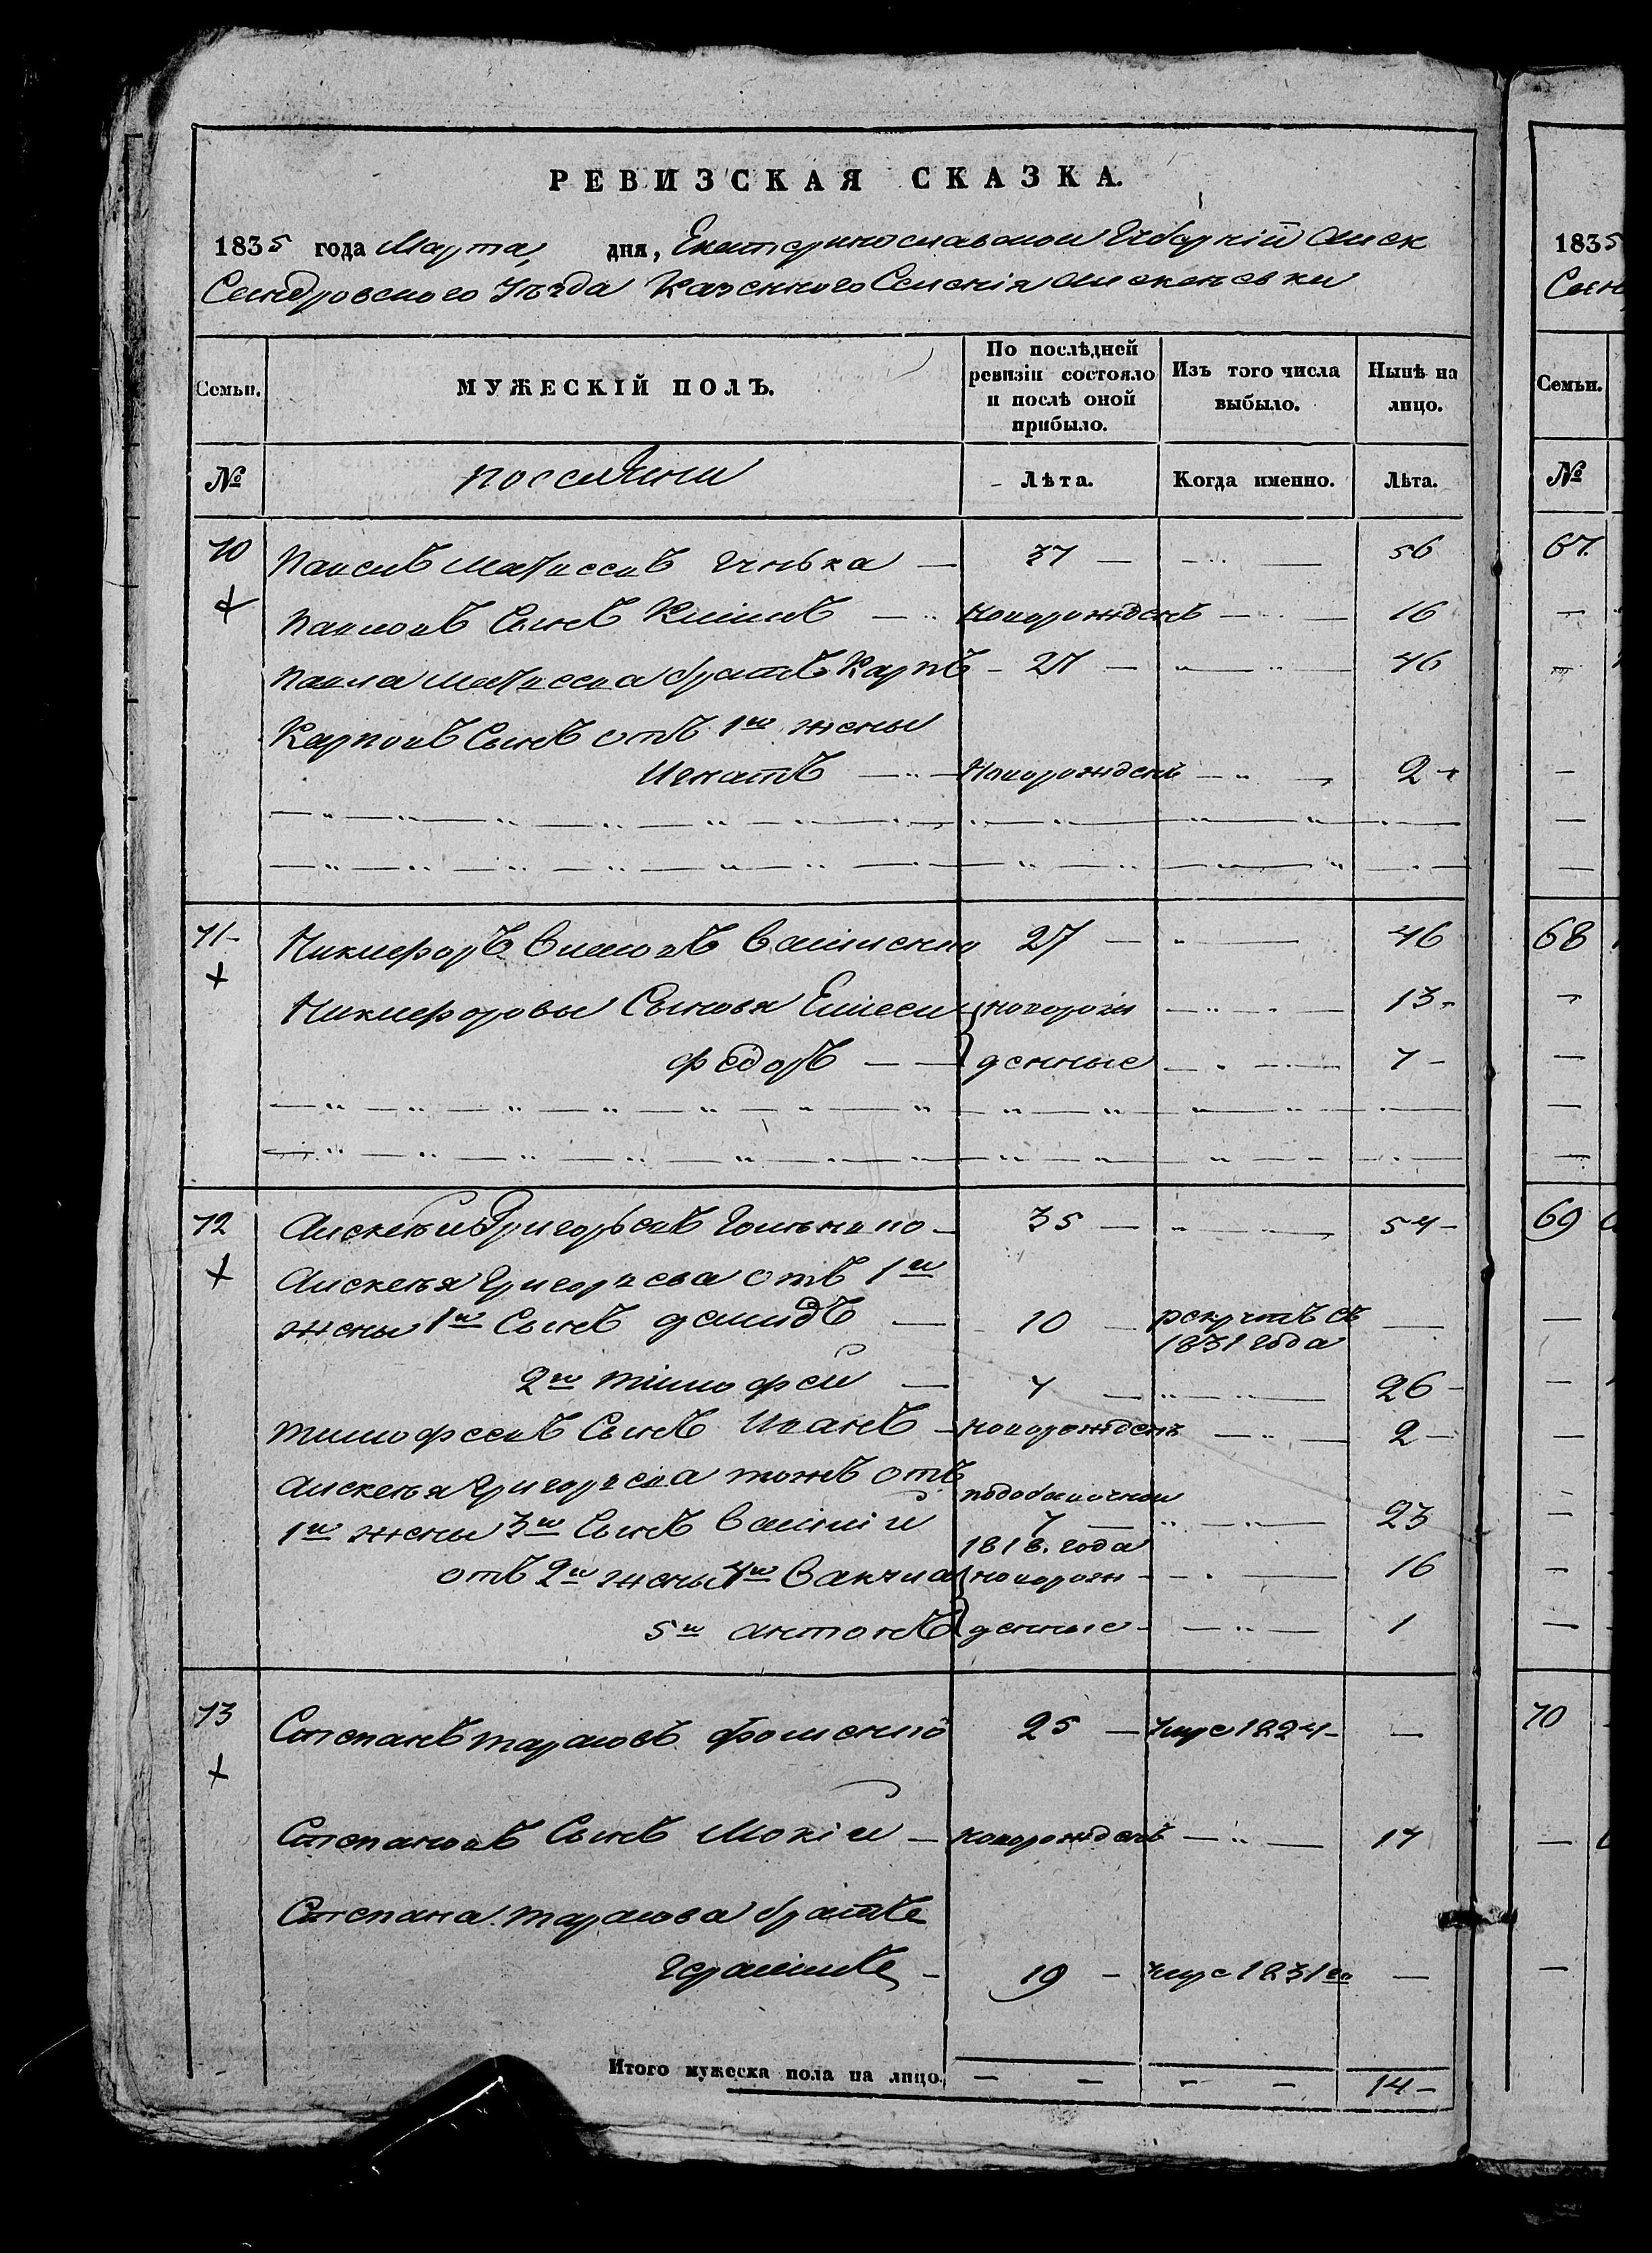 РЕВИЗСКАЯ СКАЗКА.
1835 года Марта дня, Екатеринославской Губерніи Алек
сандровского Уѣзда Казенного Селенія Алексѣевки
Семьи.
МУЖЕСКІЙ ПОЛЪ.
По послѣдней ревизіи состояло и послѣ оной прибыло.
Изъ того числа выбыло.
Нынѣ на лицо.
№
Лѣта. Когда именно. Лѣта.
70 Павелъ 37 — 56
Павловъ Сынъ Климъ — новорожденъ — 16
Павла братъ Карпъ — 27 — 46
Карповъ Сынъ отъ 1й жены
Игнатъ — Новорожденъ — 2
71 Никифоръ 27 — 46
Никифоровы Сыновья Елисей новорож — 13
Федоръ — денные — 7
72 Алексѣй Григорьевъ 35 — 54
Алексѣя Григорьева отъ 1й
жены 1й Сынъ Демидъ — 10 — рекрутъ съ 1831 года —
2й Тимофей — 7 — 26
Тимофеевъ Сынъ Иванъ — новорожденъ — 2
Алексѣя Григорьева тожъ отъ
1й жены 3й Сынъ Василій 7 — 1818. года 23
отъ 2й жены 4й новорож — 16
5й Антонъ денные — 1
73 Степанъ Тарасовъ 25 — Умре 1824 —
Степановъ Сынъ Мокій — новорожденъ — 17
Степана Тарасова братъ
Герасимъ — 19 — умре 1831го —
Итого мужеска пола на лицо. — — — — 14 —
1835
Семьи.
№
67.
68
69
70